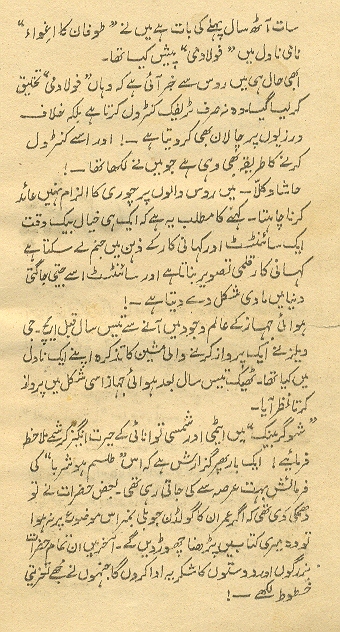 سات آٹھ سال پہلے کی بات ہے میں نے "طوفان کا اغواء"
نامی ناول میں "فولادمی" پیش کیا تھا۔
ابھی حال ہی میں روس سے خبر آئی ہے کہ وہاں "فولادمی" تخلیق
کر لیا گیا۔ وہ نہ صرف ٹریفک کنٹرول کرتا ہے بلکہ خلاف
ورزیوں پر چالان بھی کر دیتا ہے ـــ! اور اسے کنٹرول
کرنے کا طریقہ بھی وہی ہے جو میں نے لکھا تھا ـــ!
حاشا و کلاّ ـــ میں روس والوں پر چوری کا الزام نہیں عائد
کرنا چاہتا۔ کہنے کا مطلب یہ ہے کہ ایک ہی خیال بیک وقت
ایک سائنٹسٹ اور کہانی کار کے ذہن میں جنم لے سکتا ہے
کہانی کار قلمی تصویر بناتا ہے اور سائنٹسٹ اسے جیتی جاگتی
دنیا میں مادی شکل دے دیتا ہے ـــ!
ہوائی جہاز کے عالم وجود میں آنے سے تیس سال قبل ایچ۔ جی
ویلز نے ایک پرواز کرنے والی مشین کا تذکرہ اپنے ایک ناول
میں کیا تھا۔ ٹھیک تیس سال بعد ہوائی جہاز اسی شکل میں پرواز
کرتا نظر آیا۔
"شوگر بینک" میں ایٹمی اور شمسی توانائی کے حیرت انگیز کرشمے ملاحظہ
فرمائیے! ایک بار پھر گزارش ہے کہ اس "طلسم ہوشربا" کی
فرمائش بہت عرصہ سے کی جاتی رہی تھی۔ بعض حضرات نے تو
دھمکی دی تھی کہ اگر عمران کا گولڈن جوبلی نمبر اس موضوع پر نہ ہوا
تو وہ میری کتابیں پڑھنا چھوڑ دیں گے۔ آخر میں ان تمام حضرات
بزرگوں اور دوستوں کا شکریہ ادا کروں گا جنہوں نے مجھے تعزیتی
خطوط لکھے ـــ!